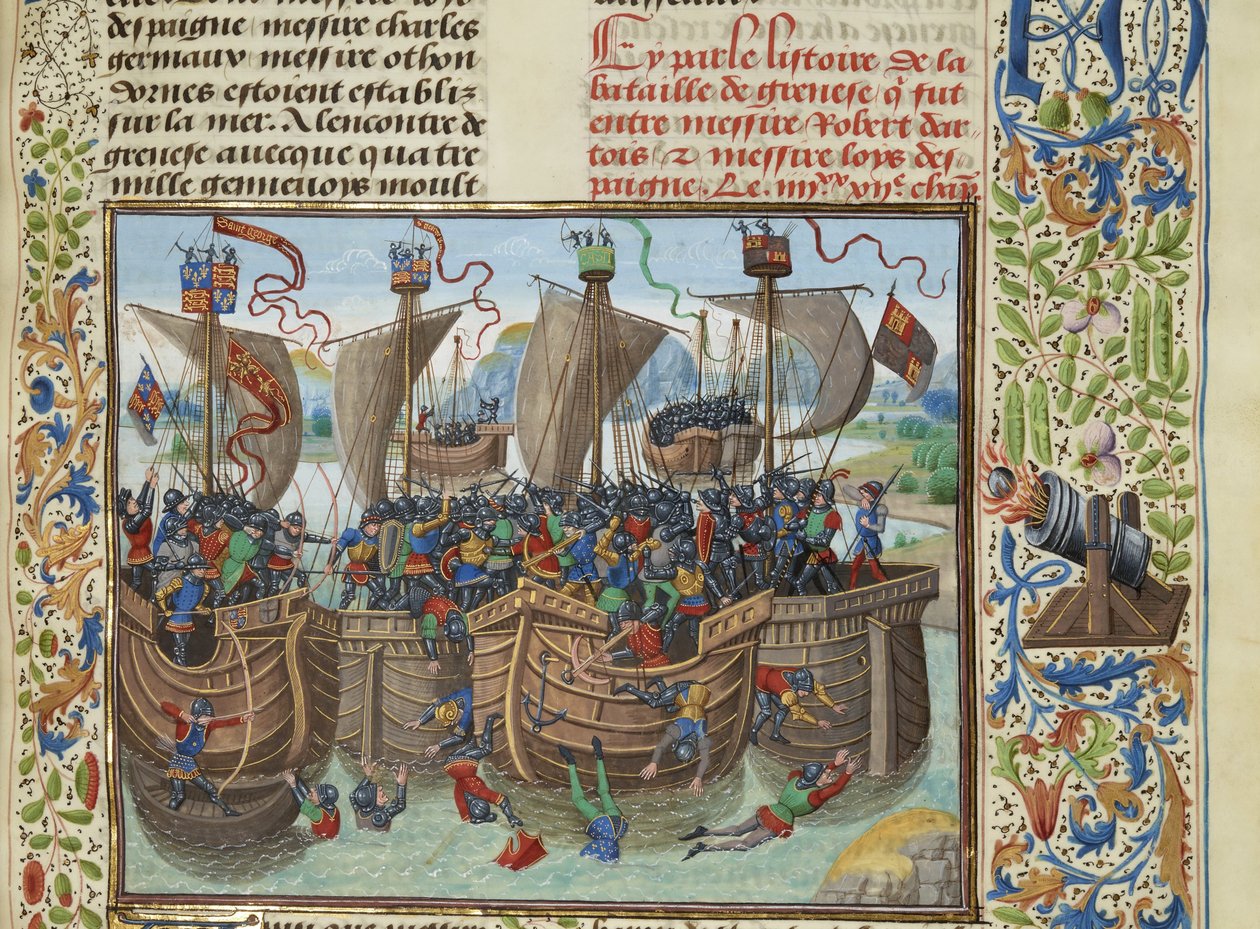 despaigne messire charles
germaux messire othon
dornes estoient establiz
sur la mer. A lencontre de
grenese avecque quatre
mille gennevoys moult
Cy parle listoire de la
bataille de grenese q̃ fut
entre messire Robert dar-
tois ⁊ messire loys des-
paigne. Le. iiijˣˣ. xijᵉ. chap̃
Saint george